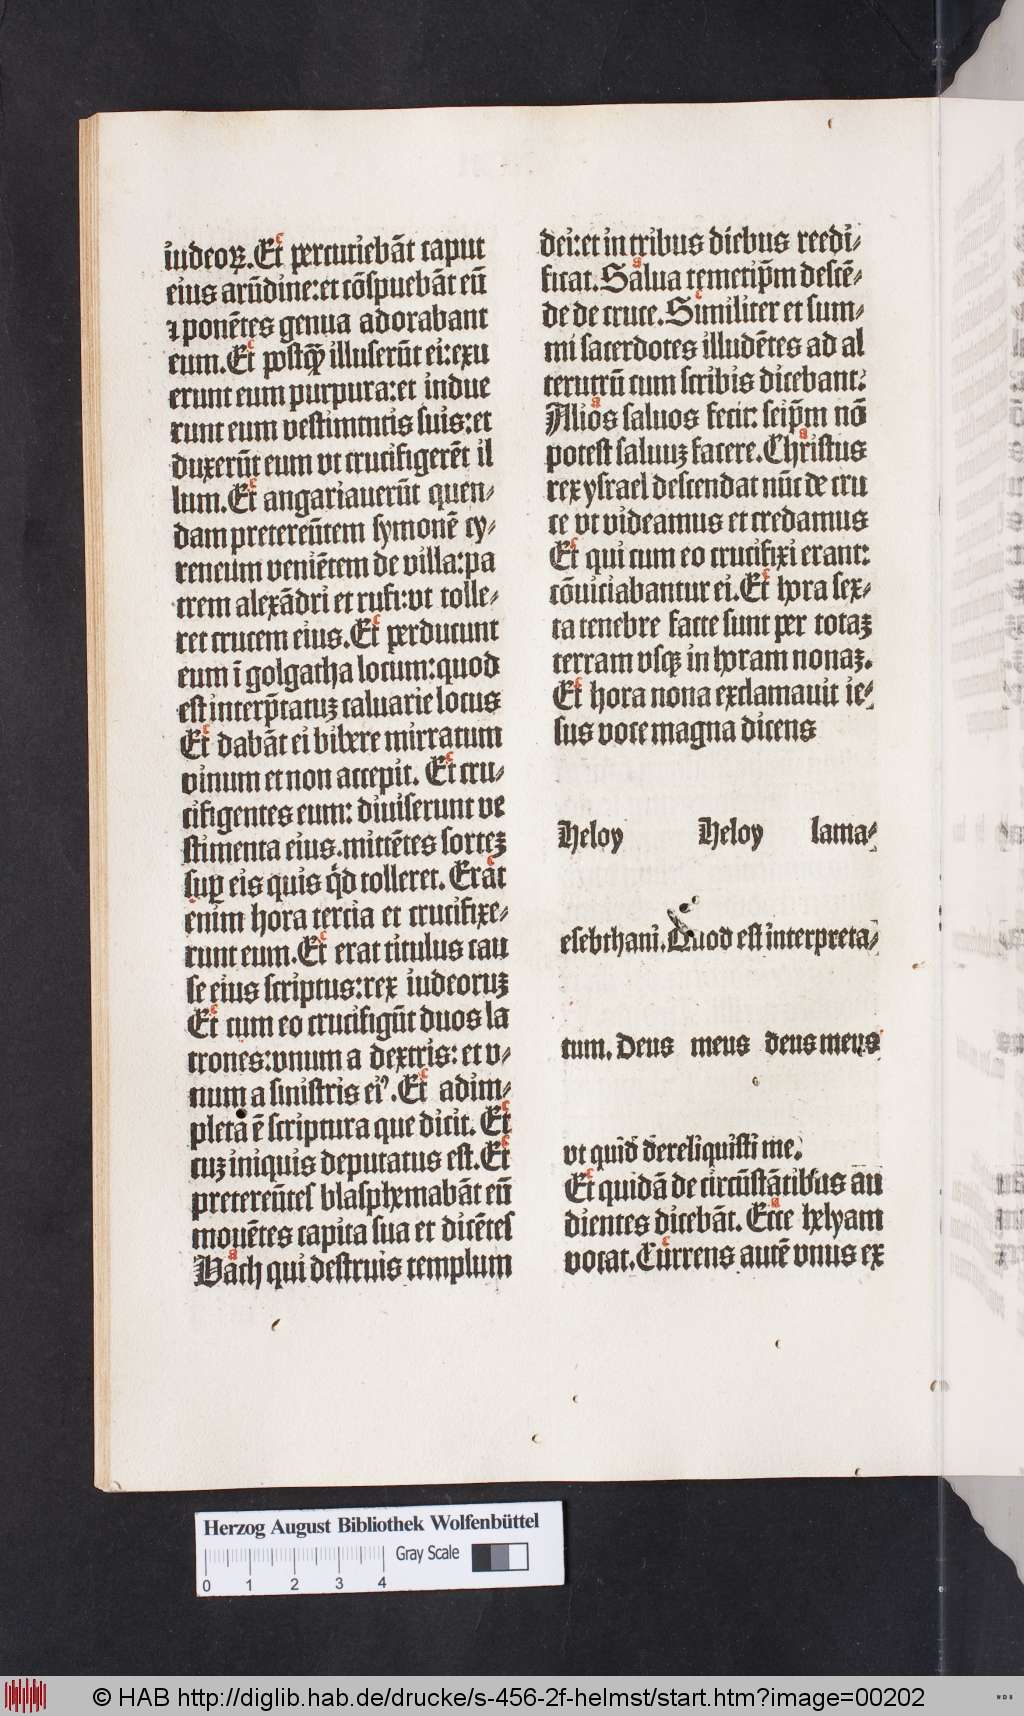 iudeoꝝ. Et percutiebāt caput
eius arūdine: et cōspuebāt eū
⁊ ponētes genua adorabant
eum. Et postꝙ̄ illuserūt ei: exu
erunt eum purpura: et indue
runt eum vestimentis suis: et
duxerūt eum vt crucifigerēt il
lum. Et angariauerūt quen⸗
dam pretereūtem symonē cy⸗
reneum veniētem de villa: pa
trem alexādri et rufi: vt tolle⸗
ret crucem eius. Et perducunt
eum ī golgatha locum: quod
est interp̄tatuꝫ caluarie locus
Et dabāt ei bibere mirratum
vinum et non accepit. Et cru⸗
cifigentes eum: diuiserunt ve
stimenta eius. mittētes sorteꝫ
suꝑ eis quis q̄d tolleret. Erat
enim hora tercia et crucifixe⸗
runt eum. Et erat titulus cau
se eius scriptus: rex iudeoruꝫ
Et cum eo crucifigūt duos la
trones: vnum a dextris: et v⸗
num a sinistris eiꝰ. Et adim⸗
pleta ē scriptura que dicit. Et
cuꝫ iniquis deputatus est. Et
pretereūtes blasphemabāt eū
mouētes capita sua et dicētes
Vach qui destruis templum
dei: et in tribus diebus reedi⸗
ficat. Salua temetip̄m descē⸗
de de cruce. Similiter et sum⸗
mi sacerdotes illudētes ad al
terutrū cum scribis dicebant:
Alios saluos fecit: seip̄m nō
potest saluuꝫ facere. Christus
rex ysrael descendat nūc de cru
ce vt videamus et credamus
Et qui cum eo crucifixi erant:
cōuiciabantur ei. Et hora sex⸗
ta tenebre facte sunt per totaꝫ
terram vsqꝫ in horam nonaꝫ.
Et hora nona exclamauit ie⸗
sus voce magna dicens
Heloy Heloy lama⸗
esebthani. Quod est interpreta⸗
tum. Deus meus deus meus
vt quid dereliquisti me.
Et quidā de circūstātibus au
dientes dicebāt. Ecce helyam
vocat. Currens autē vnus ex
Herzog August Bibliothek Wolfenbüttel
Gray Scale
0 1 2 3 4
© HAB http://diglib.hab.de/drucke/s-456-2f-helmst/start.htm?image=00202